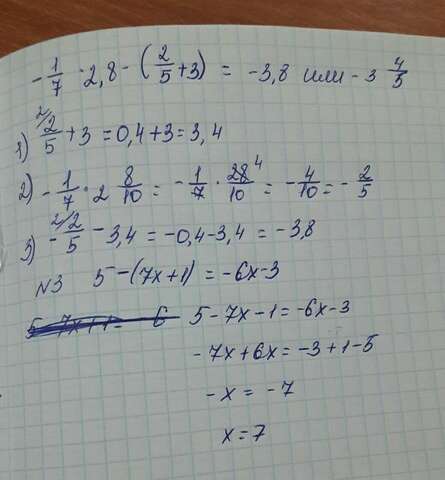 -1/7 · 2,8 - (2/5 + 3) = -3,8 или -3 4/5
1) 2/2/5 + 3 = 0,4 + 3 = 3,4
2) -1/7 · 2 8/10 = -1/7 · 28⁴/10 = -4/10 = -2/5
3) -2/2/5 - 3,4 = -0,4 - 3,4 = -3,8
N3 5 - (7x + 1) = -6x - 3
5 - 7x - 1 = -6x - 3
-7x + 6x = -3 + 1 - 5
-x = -7
x = 7